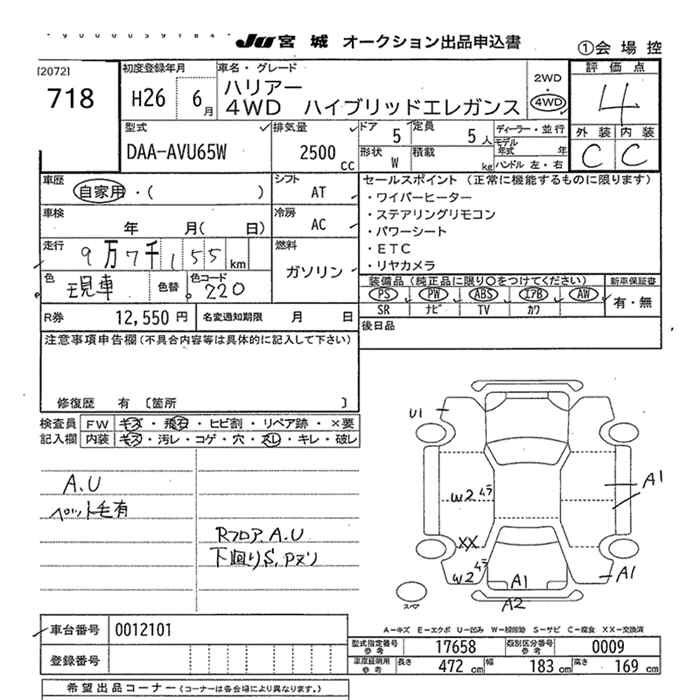 JU 宮城 オークション出品申込書
①会場控
[2072]
718
初度登録年月
H26 6月
車名・グレード
ハリアー
4WD ハイブリッドエレガンス
2WD
・
4WD
評価点
4
外装 内装
C C
型式
DAA-AVU65W
排気量
2500 CC
ドア 5
定員 5人
形状 W
積載 kg
ディーラー・並行
モデル年式 年
ハンドル 左・右
車歴
自家用・( )
シフト AT
車検 年 月( 日)
冷房 AC
走行
9万7千155km
燃料
ガソリン
色 現車
色替
色コード 220
R券 12,550円
名変通知期限 月 日
セールスポイント(正常に機能するものに限ります)
・ワイパーヒーター
・ステアリングリモコン
・パワーシート
・ETC
・リヤカメラ
装備品(純正品に限り○をつけてください)
新車保証書
PS PW ABS エアB AW
SR ナビ TV カワ
有・無
後日品
注意事項申告欄(不具合内容等は具体的に記入して下さい)
修復歴 有 〔箇所 〕
検査員記入欄
FW キズ・飛石・ヒビ割・リペア跡・×要
内装 キズ・汚レ・コゲ・穴・スレ・キレ・破レ
A.U
ペット毛有
Rフロア A.U
下廻りS,Pズリ
U1
W2
A1
XX
W2
A1
A1
A2
スペア
A-キズ E-エクボ U-凹み W-補修跡 S-サビ C-腐食 XX-交換済
車台番号 0012101
登録番号
型式指定番号 参考 17658
類別区分番号 参考 0009
車庫証明用 参考 長さ 472cm 幅 183cm 高さ 169cm
希望出品コーナー(コーナーは各会場により異なります。)